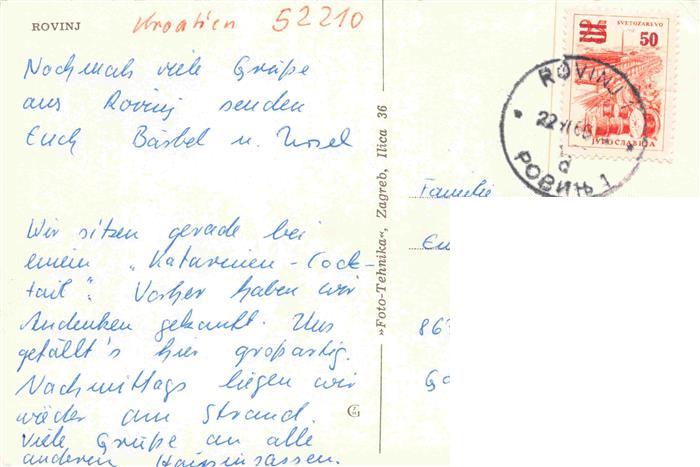 ROVINJ
Kroatien 52210
Nochmals viele Grüße
aus Rovinj senden
Euch Bärbel u. Ursel
Wir sitzen gerade bei
einem „Katarinen-Cock-
tail". Vorher haben wir
Andenken gekauft. Uns
gefällt's hier großartig.
Nachmittags liegen wir
wieder am Strand.
Viele Grüße an alle
anderen Hausinsassen.
»Foto-Tehnika«, Zagreb, Ilica 36
SVETOZAREVO
50
JUGOSLAVIJA
ROVINJ
22 VI
d
РОВИЊ 1
Familie